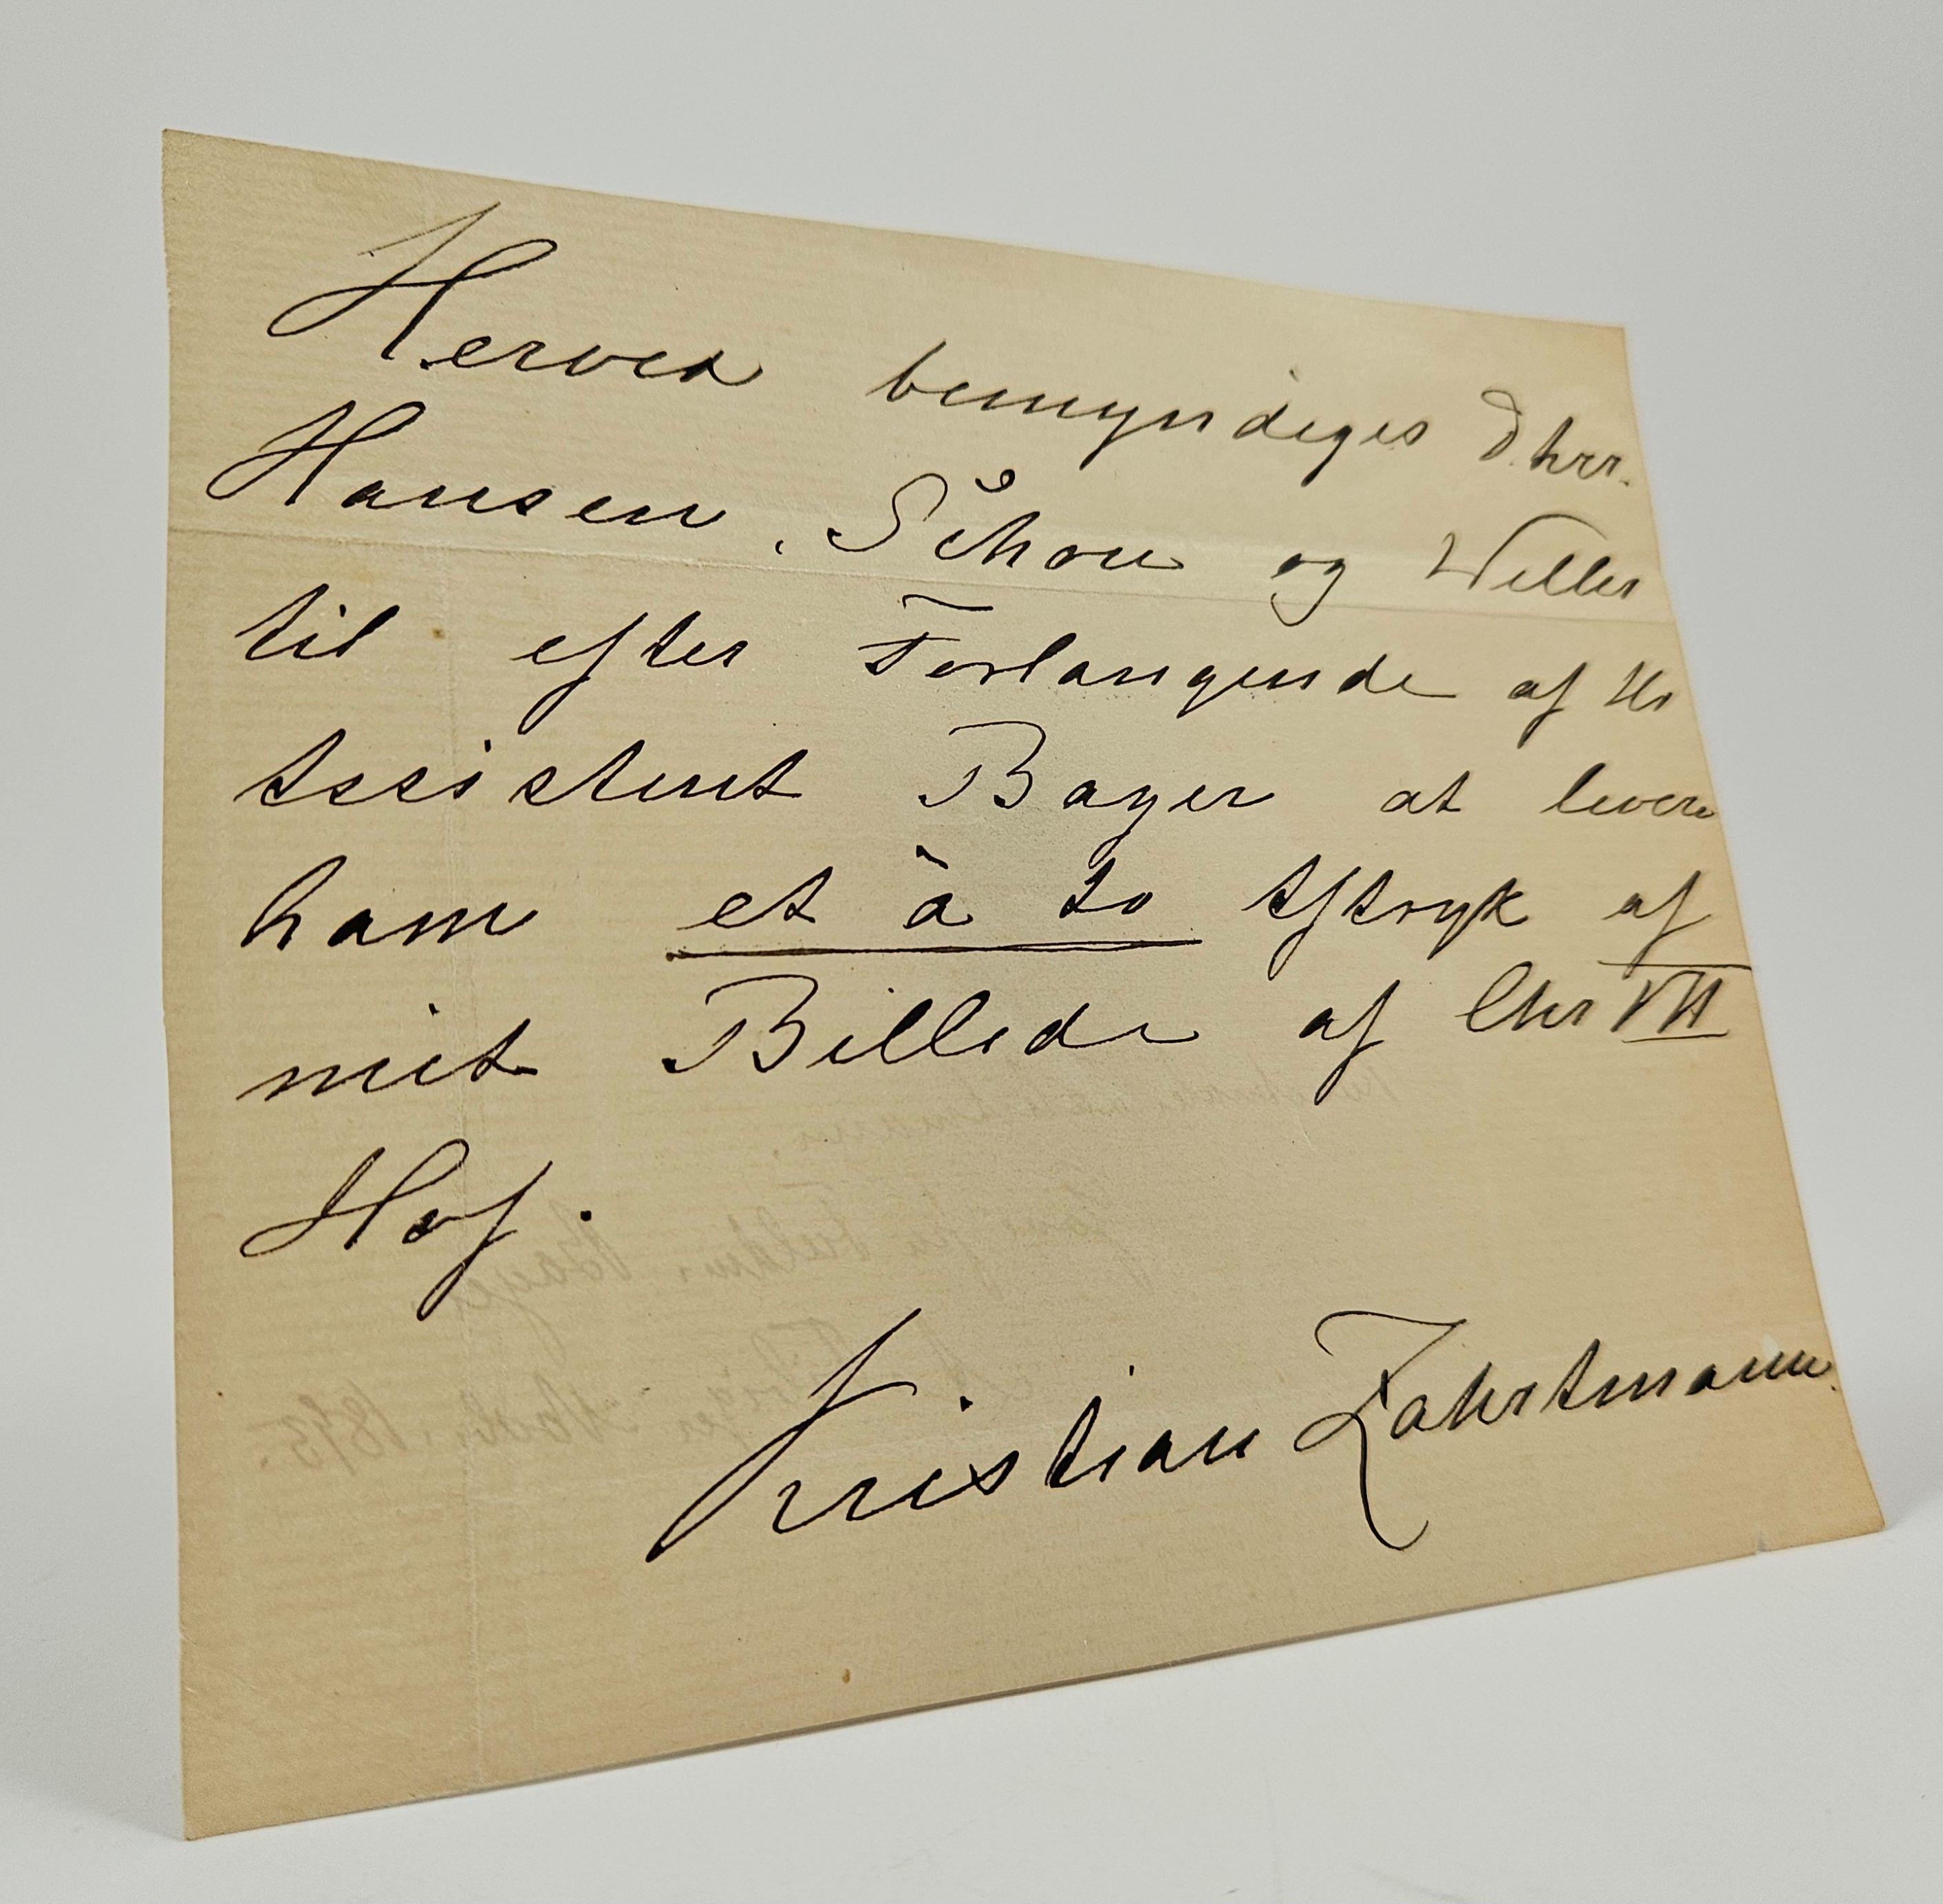 Herved bemyndiges DHrr.
Hansen, Schou og Weller
til efter Forlangende af Hr
Assistent Bayer at levere
ham et à to Aftryk af
mit Billede af Chr VII
Hof.
Kristian Zahrtmann.